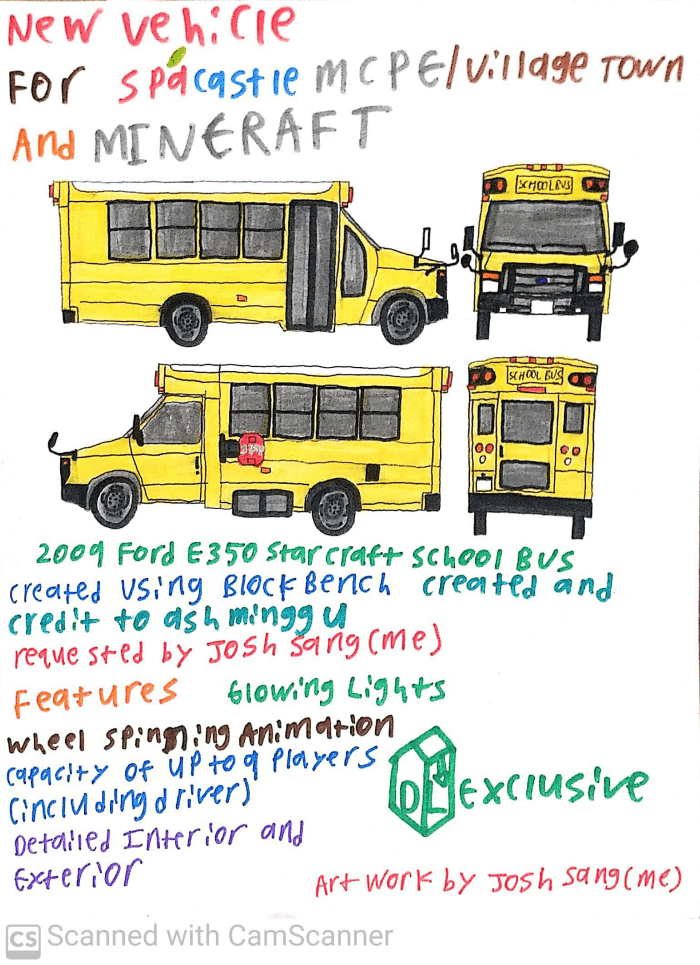 New vehicle
For spacastle MCPE/village TOWN
And MINERAFT
SCHOOL BUS
SCHOOL BUS
2009 Ford E350 starcraft school BUS
created using BlockBench created and
credit to ash minggu
requested by Josh Sang (me)
Features Glowing Lights
wheel spinning Animation
capacity of up to 9 players
(including driver)
Detailed Interior and
Exterior
DL Exclusive
Artwork by Josh Sang (me)
CS Scanned with CamScanner